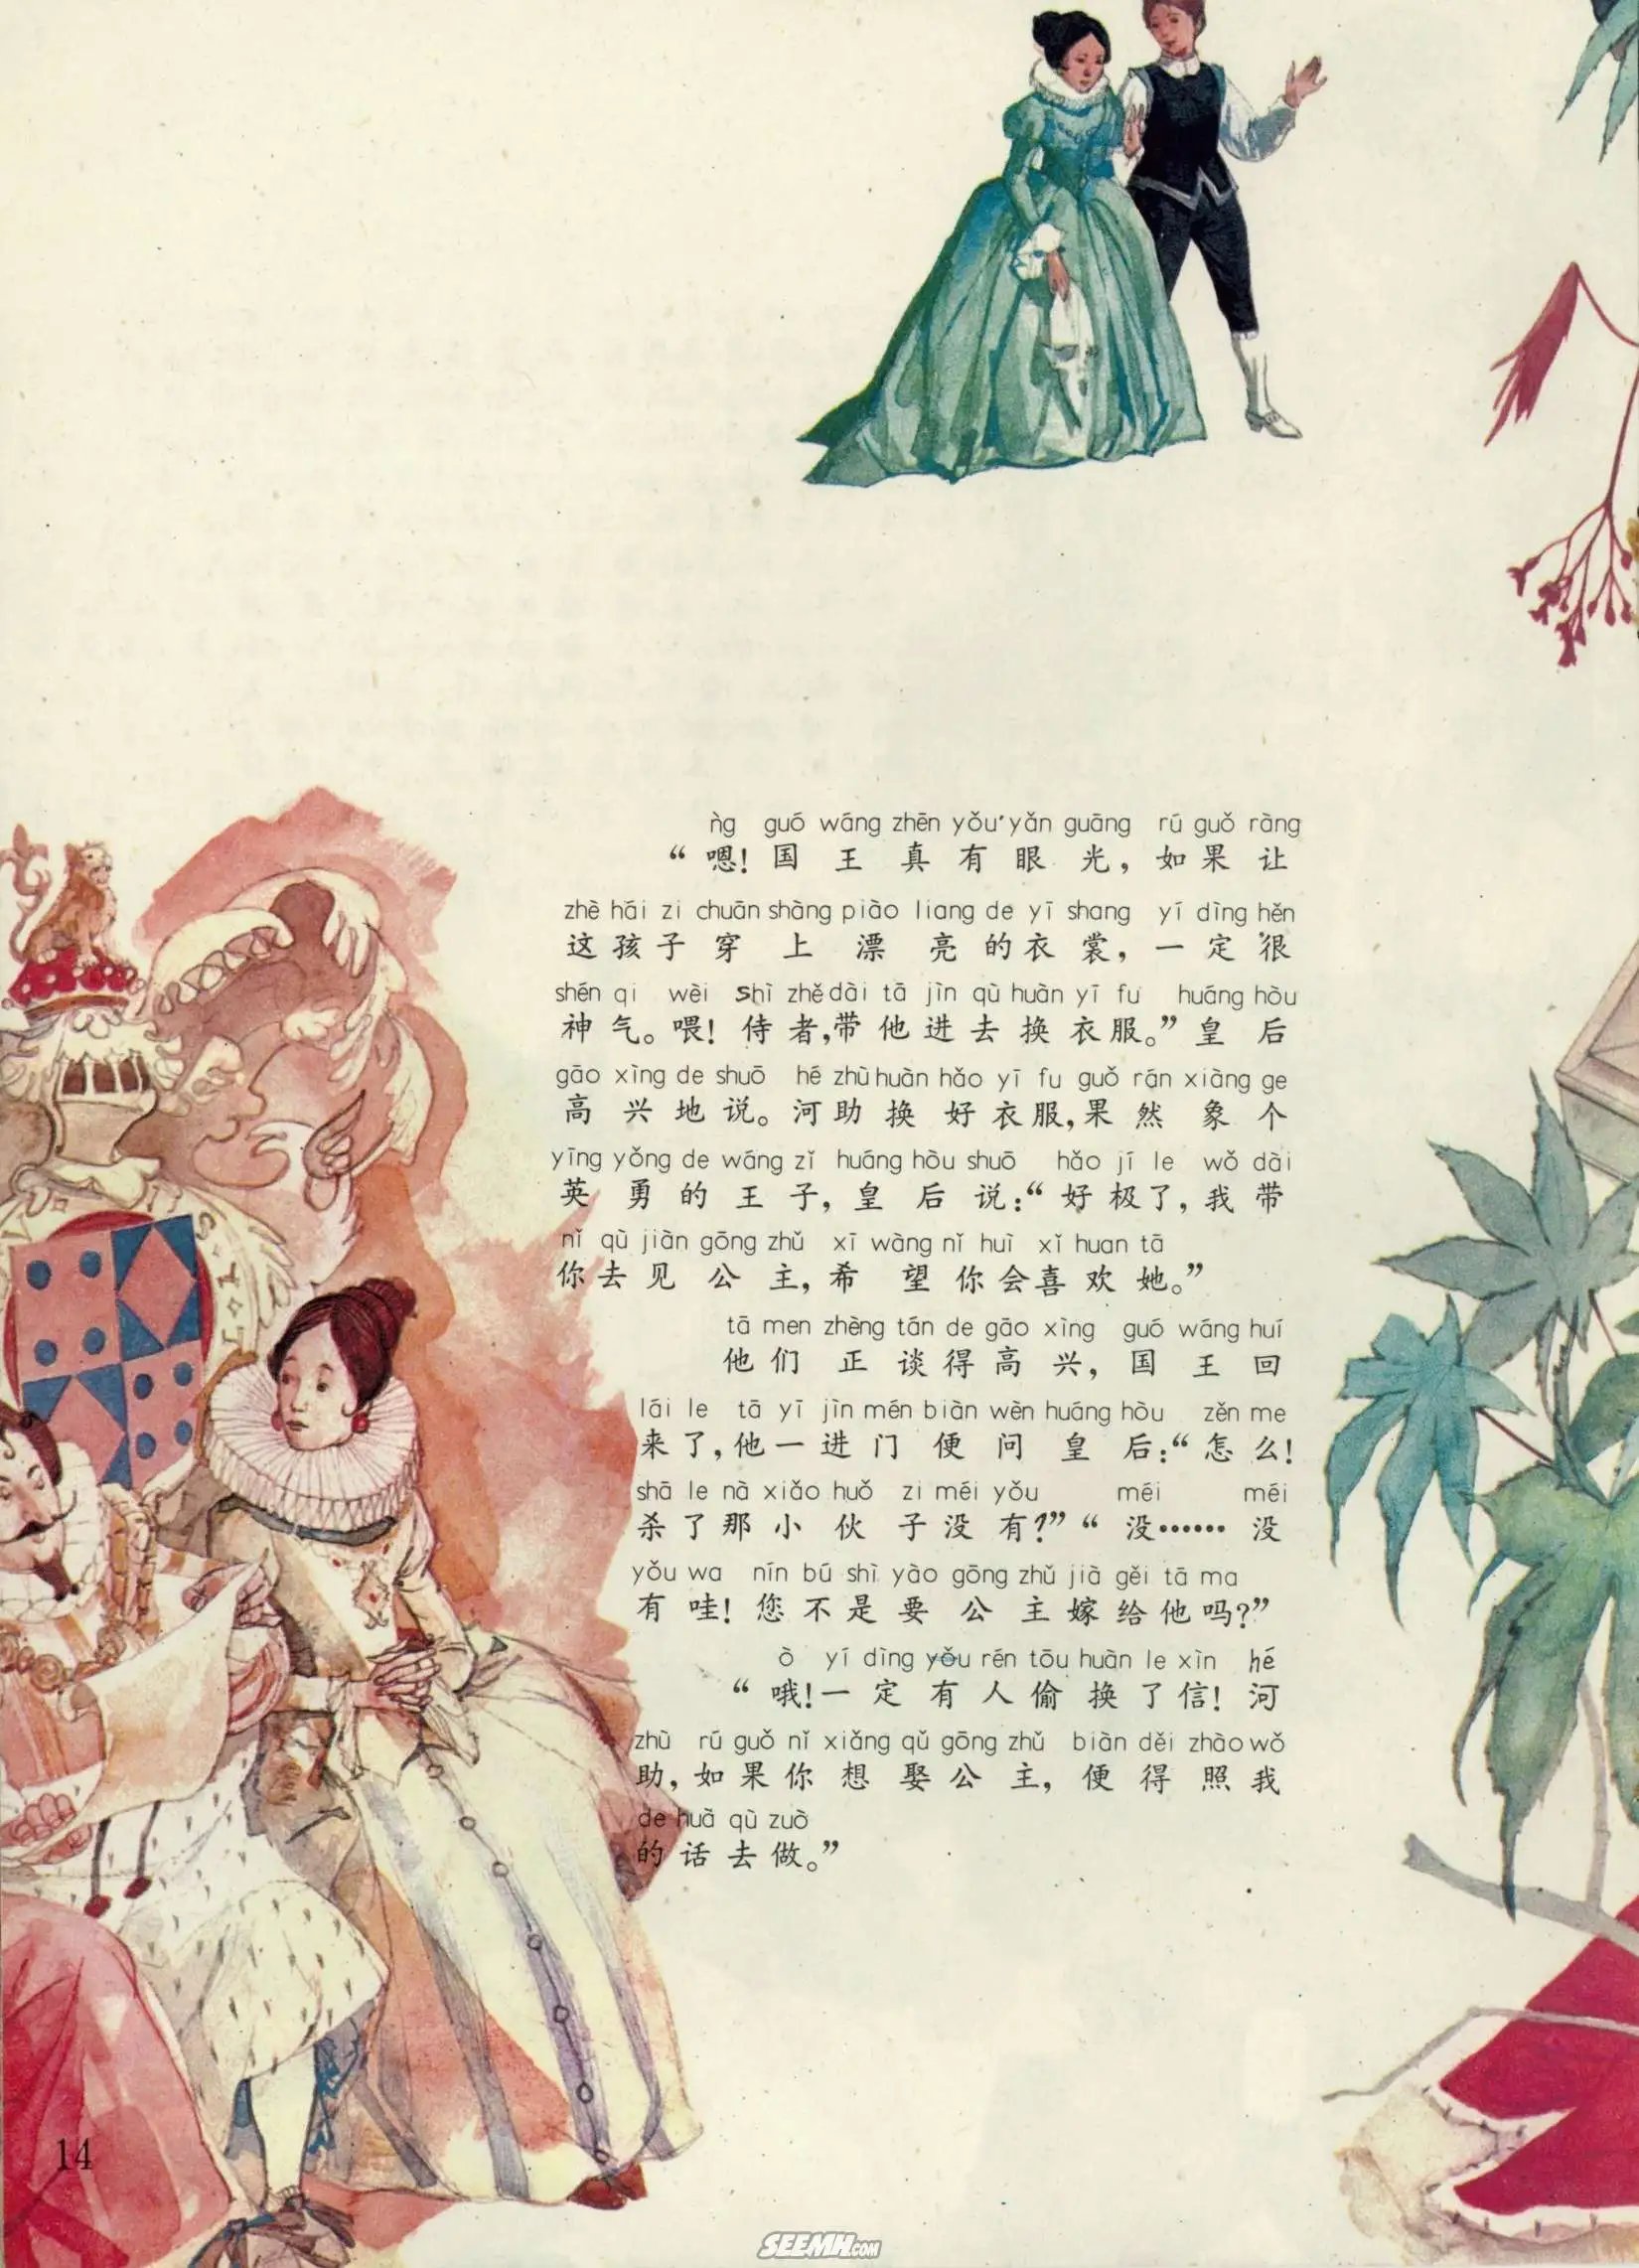 ǹg guó wáng zhēn yǒu yǎn guāng rú guǒ ràng
“嗯！国王真有眼光，如果让
zhè hái zi chuān shàng piào liang de yī shang yí dìng hěn
这孩子穿上漂亮的衣裳，一定很
shén qi wèi shì zhě dài tā jìn qù huàn yī fu huáng hòu
神气。喂！侍者，带他进去换衣服。”皇后
gāo xìng de shuō hé zhù huàn hǎo yī fu guǒ rán xiàng ge
高兴地说。河助换好衣服，果然象个
yīng yǒng de wáng zǐ huáng hòu shuō hǎo jí le wǒ dài
英勇的王子，皇后说：“好极了，我带
nǐ qù jiàn gōng zhǔ xī wàng nǐ huì xǐ huan tā
你去见公主，希望你会喜欢她。”
tā men zhèng tán de gāo xìng guó wáng huí
他们正谈得高兴，国王回
lái le tā yī jìn mén biàn wèn huáng hòu zěn me
来了，他一进门便问皇后：“怎么！
shā le nà xiǎo huǒ zi méi yǒu méi méi
杀了那小伙子没有？”“没……没
yǒu wa nín bú shì yào gōng zhǔ jià gěi tā ma
有哇！您不是要公主嫁给他吗？”
ò yí dìng yǒu rén tōu huàn le xìn hé
“哦！一定有人偷换了信！河
zhù rú guǒ nǐ xiǎng qǔ gōng zhǔ biàn děi zhào wǒ
助，如果你想娶公主，便得照我
de huà qù zuò
的话去做。”
14
SEEMH.COM